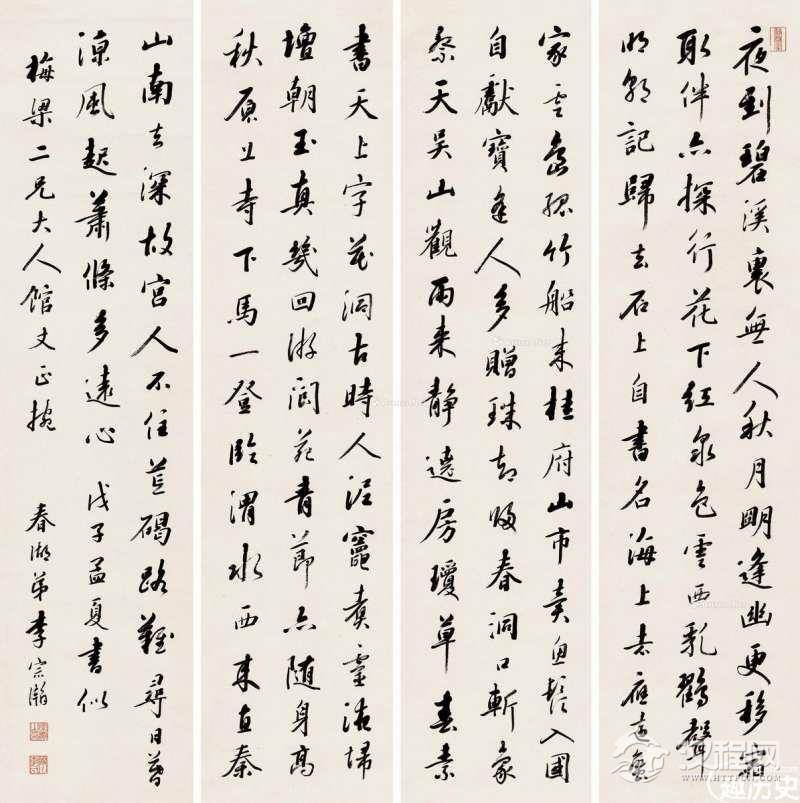 夜到碧溪裏無人秋月明逢幽更移宿
取伴亦探行花下紅泉色雲西乳鶴聲
明朝記歸去石上自書名海上去應遠蠻
家雲島孤竹船來桂府山市賣魚鬚入國
自獻寶逢人多贈珠却歸春洞口斬象
祭天吳山觀雨來靜遶房瓊草春素
書天上字花洞古時人泥竈煮靈液掃
壇朝玉真幾回游閬苑青節亦隨身高
秋原上寺下馬一登臨渭水西來直秦
山南去深故宮人不住荒碣路難尋日暮
涼風起蕭條多遠心 戊子孟夏書似
梅梁二兄大人館丈正捥
春湖弟李宗瀚
課程網
趣历史